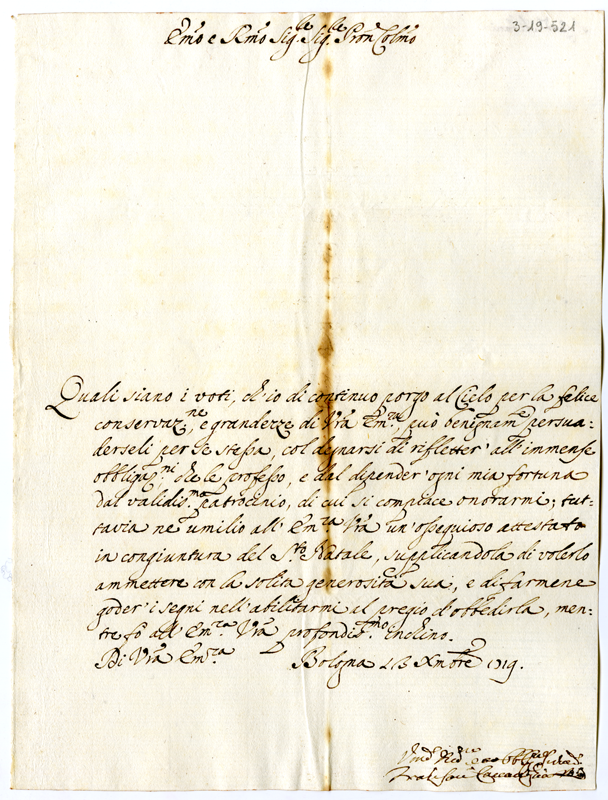 3-19-521
Emo e Rmo Sig.re Sig.re Pron Colmo
Quali siano i voti, ch'io di continuo porgo al Cielo per la felice
conservaz.ne, e grandezze di Vra Em.za, può benignam.e persua:
derseli per se stessa, col degnarsi di rifletter' all'immense
obblig.ni che le professo, e dal dipender' ogni mia fortuna
dal validis.mo patrocinio, di cui si compiace onorarmi; tut:
tavia ne umilio all' Em.za Vra un'ossequioso attestato
in congiuntura del S.to Natale, supplicandola di volerlo
ammettere con la solita generosità sua, e di farmene
goder' i segni nell'abilitarmi al pregio d'obbedirla, men:
tre fo all' Em.za Vra profondis.mo inchino.
Di Vra Em.za Bologna Xmbre 1719.